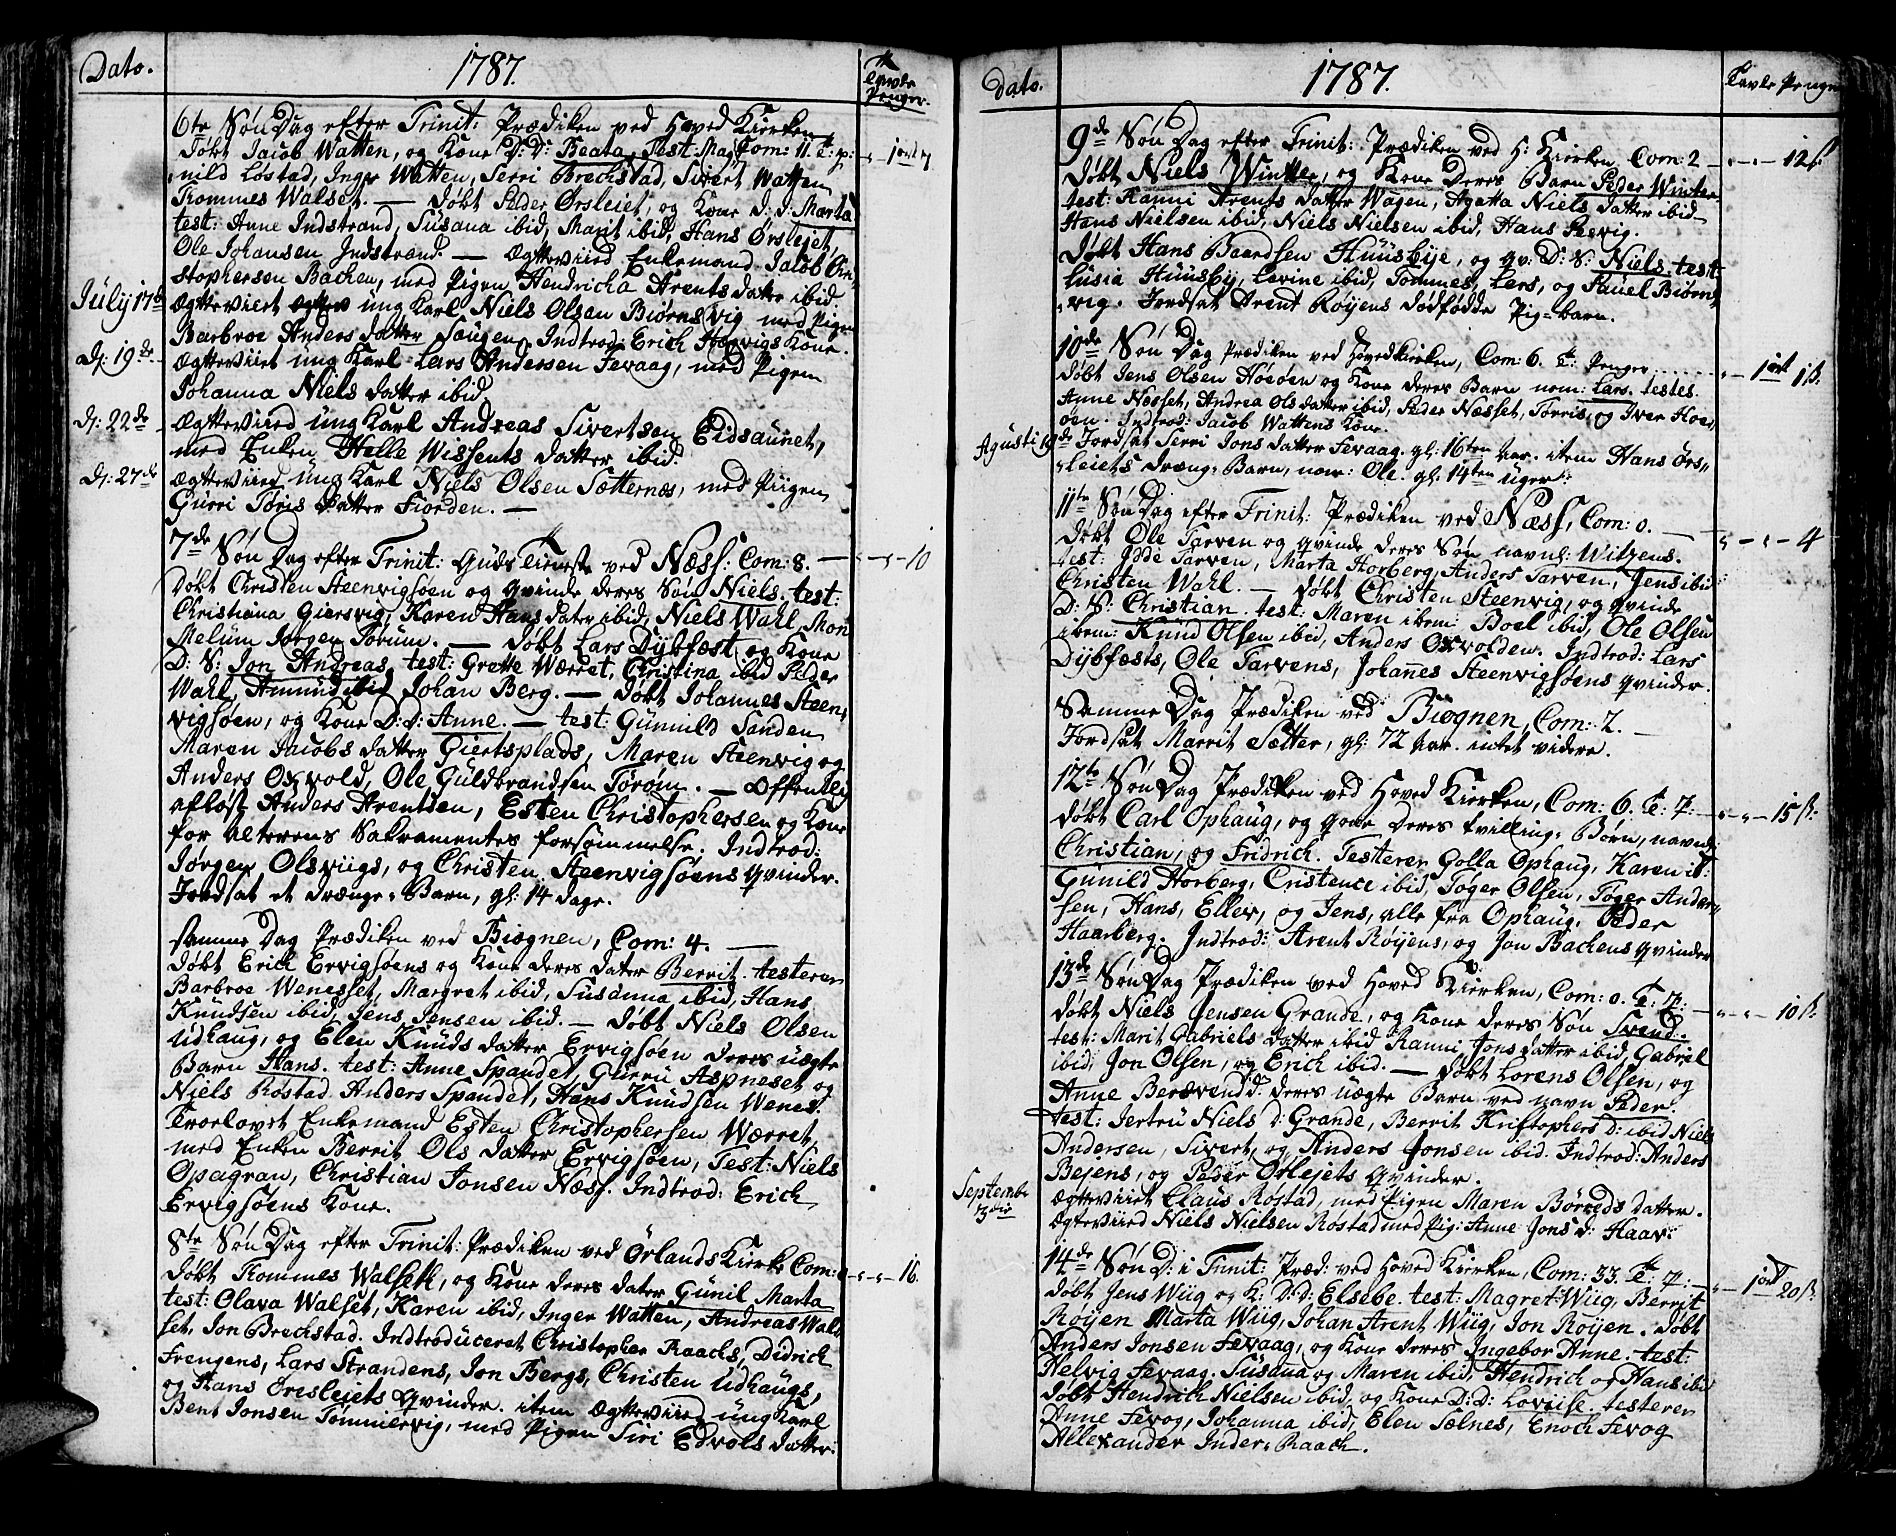 Dato.
1787.
Tavle
Penger.
6te Søn Dag efter Trinit: Prædiken ved Hoved Kierken
Døbt Jacob Watten, og Kone D: D: Beata, Test: Ma Com: 11. T: p:
1 ort 7
nild Løstad, Inger Watten, Serri Brechstad, Sivert Watten
Tommes Walset. — Døbt Peder Ørsleiet, og Kone D: d: Marta
test: Anne Indstrand, Susana ibid, Marit ibid, Hans Ørslejet,
Ole Johansen Indstrand. — Ægtteviird Enkemand Jacob Chri
stophersen Bachen, med Pigen Hendricha Arents datter ibid.
July 17de
Ægtteviiet ung Karl Niels Olsen Biørnsvig med Pigen
Barbroe Anders datter Saugen, Indtrod: Erich Hærvigs Kone.
D: 19de
Ægtteviiet ung Karl Lars Andersen Fevaag, med Pigen
Johanna Niels datter ibid
D: 22de
Ægtteviied ung Karl Andreas Sivertsen Eidsaunet,
med Enken Helle Wissents datter ibid.
D: 27de
Ægtteviied ung Karl Niels Olsen Sætternæs, med Piigen
Gurri Tøris datter Fiorden. —
7de Søn Dag efter Trinit: Guds Tieneste ved Næss: Com: 8. —
10
Døbt Christen Steenvigsøen og qvinde deres Søn Niels. test:
Christiana Giersvig, Karen Hans dater ibid, Niels Wahl, Mon
Melum Jørgen Tørum. — Døbt Lars Dybfæst og Kone
D: S: Jon Andreas, test: Grette Wærret, Christina ibid Peder
Wahl, Amund ibid Johan Berg. — Døbt Johannes Steen
vigsøen, og Kone D: d: Anne. — test: Gunnild Sanden
Maren Jacobs datter Giertsplads, Maren Steenvig og
Anders Oxvold, Ole Guldbrandsen Tørøm. — Offentlig
afløst Anders Arentsen, Esten Christophersen og Kone
for Alterens Sakramentes forsømmelse. Indtrod:
Jørgen Olsviigs, og Christen Steenvigsøens qvinder.
Jordsat et drænge-Barn, gl: 14 dage.
samme Dag Prædiken ved Biognen, Com: 4. —
Døbt Erich Ervigsøens og Kone deres dater Berrit. testerer
Barbroe Wenesset, Margret ibid, Susanna ibid, Hans
Knudsen ibid, Jens Jensen ibid. — Døbt Niels Olsen
Udhaug, og Elen Knuds datter Ervigsøen deres uægte
Barn Hans. test: Anne Spandet, Gurru Aspneset og
Niels Røstad Anders Spandet, Hans Knudsen Wenes.
Troelovet Enkemand Esten Christophersen Wærret,
med Enken Berrit Ols datter Ervigsøen, Test: Niels
Opagran, Christian Jonsen Næss. Indtrod: Erich
Ervigsøens Kone.
8te Søn Dag efter Trinit: Prædiken ved Ørlands Kierke Com:
16.
Døbt Tommes Walseth, og Kone deres dater Gunil Marta
test: Olava Walset, Karen ibid, Inger Watten, Andreas Wal
set, Jon Brechstad. Indtroduceret Christopher Raachs, Didrich
Frengens, Lars Strandens, Jon Bergs, Christen Udhaugs,
og Hans Øresleiets qvinder. item Ægtteviied ung Karl
Bent Jonsen Tommiervig, med Pigen Siri Edvols datter.
Dato.
1787.
Tavle Penger
9de Søn Dag efter Trinit: Prædiken ved H: Kierken Com: 2
12 ß
Døbt Niels Wintter, og Kone deres Barn Peder Winter
test: Kanni Arents datter Wagen, Agatta Niels datter ibid
Hans Nielsen ibid, Niels Nielsen ibid, Hans Revig.
Døbt Hans Baardsen Huusbye, og qv: D: S: Niels test:
Lusia Huusby, Lavine ibid, Tommes, Lars, og Pauel Biørn
vig. Jordsat Arent Røyens dødfødde Pig-barn.
10de Søn Dag Prædiken ved Hovedkierken, Com: 6. T: Penger
1 ort 1 ß.
Døbt Jens Olsen Høeøen og Kone deres Barn nom: Lars. testes
Anne Næsset, Andrea Ols datter ibid, Peder Næsset, Tørris, og Iver Hoe
øen. Indtrod: Jacob Wattens Kone.
Agusti 19de
Jordsat Serri Jons datter Fevaag. gl: 16ten Aar. item Hans Ørs
leiets dræng-Barn, nom: Ole. gl: 14ten uger.
11te Søn Dag efter Trinit: Prædiken ved Næss, Com: 0.
4
Døbt Ole Tarven og qvinde deres Søn navnl: Witzens.
test: Idde Tarven, Marta Horberg, Anders Tarven, Jens ibid
Christen Wahl. — Døbt Christen Steenvig, og qvinde
D: S: Christian. test: Maren ibem: Boel ibid, Ole Olsen
ibem: Knud Olsen ibid, Anders Oxvolden. Indtrod: Lars
Dybfæsts, Ole Tarvens, Johanes Steenvigsøens qvinder.
Samme Dag Prædiken ved Biognen, Com: 2. —
Jordsat Marrit Sætter, gl: 72 Aar. intet videre.
12te Søn Dag Prædiken ved Hoved Kierken, Com: 6. T: p:
15 ß.
Døbt Carl Ophaug, og qone deres tvilling-Børn, navnl:
Christian, og Fridrich. Testerer Golla Ophaug, Karen it:
Gunild Horberg, Cristence ibid, Tøger Olsen, Tøger Ander
sen, Hans, Eller, og Jens, alle fra Ophaug, Peder
Haarberg. Indtrod: Arent Røyens, og Jon Bachens qvinder
13de Søn Dag Prædiken ved Hoved Kierken, Com: 0. T: p:
10 ß.
Døbt Niels Jensen Grande, og Kone deres Søn Svend.
test: Marit Gabriels datter ibid Ranni Jons datter ibid, Gabriel
ibid, Jon Olsen, og Erich ibid. — Døbt Lorens Olsen, og
Anne Berævend: deres uægte Barn ved navn Peder.
test: Jertru Niels d: Grande, Berrit Kristophers D: ibid Niels
Andersen, Sivert, og Anders Jonsen ibid. Indtrod: Anders
Bejens, og Peder Orlejets qvinder.
September
3die
Ægtteviiet Claus Røstad, med Pigen Maren Børreds datter.
Ægteviied Niels Nielsen Røstad med Pig: Anne Jons d: Haar:
14de Søn D: i Trinit: Præd: ved Hoved Kierken, Com: 33. T: p:
1 ort 20 ß.
Døbt Jens Wiig og K: D: d: Elsebe. test: Magret Wiig, Berrit
Røyen Marta Wiig, Johan Arent Wiig, Jon Røyen. Døbt
Anders Jonsen Fevaag, og Kone deres Ingebor Anne. test:
Helvig Fevaag. Susana og Maren ibid, Hendrich og Hans ibid
Døbt Hendrich Nielsen ibid. og Kone D: D: Loviise. testerer
Anne Fevog, Johanna ibid, Elen Sælnes, Enoch Fevog
Allexander Inder-Raach.